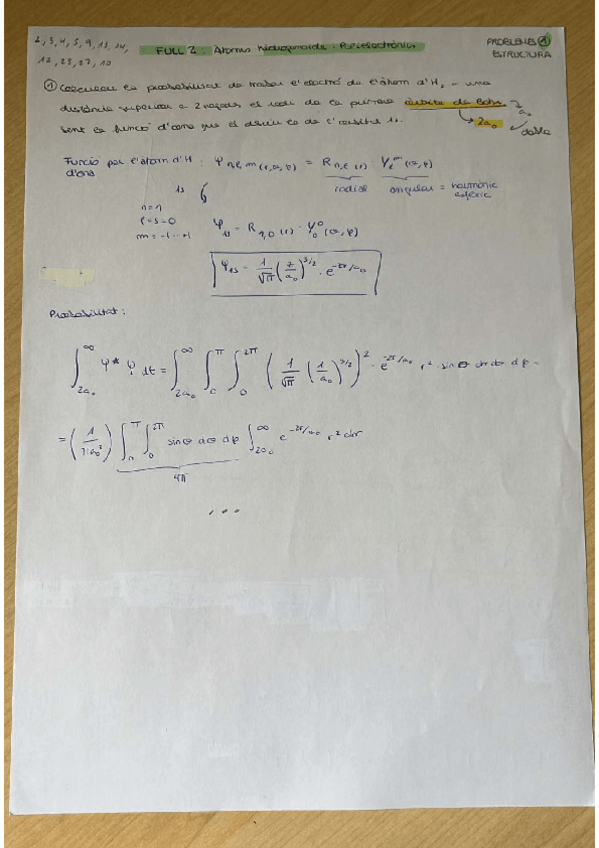 2, 3, 4, 5, 9, 13, 14,
12, 23, 27, 10
FULL 2: Àtoms hidrogenoids i Polielectrònics
PROBLEMES 1
ESTRUCTURA
① Calculeu la probabilitat de trobar l'electró de l'àtom d'H, a una
distància superior a 2 vegades el radi de la primera òrbita de Bohr.
sent la funció d'ona que el descriu la de l'orbital 1s.
→ a₀
→ 2a₀
✓ doble
Funció per l'àtom d'H: Ψ n,l,m (r,θ,φ) = R n,l (r) Y l^m (θ,φ)
d'ona
radial
angular = harmònic
esfèric
1s
n=1
Ψ 1s = R 1,0 (r) · Y 0^0 (θ,φ)
Ψ 1s = 1/√π (z/a₀)^3/2 · e^-zr/a₀
Probabilitat:
∫_{2a₀}^∞ Ψ* Ψ dτ = ∫_{2a₀}^∞ ∫_0^π ∫_0^{2π} (1/√π (1/a₀)^{3/2})² · e^{-2r/a₀} r² sinθ dr dθ dφ =
= (1/πa₀³) ∫_0^π ∫_0^{2π} sinθ dθ dφ ∫_{2a₀}^∞ e^{-2r/a₀} r² dr
4π
...